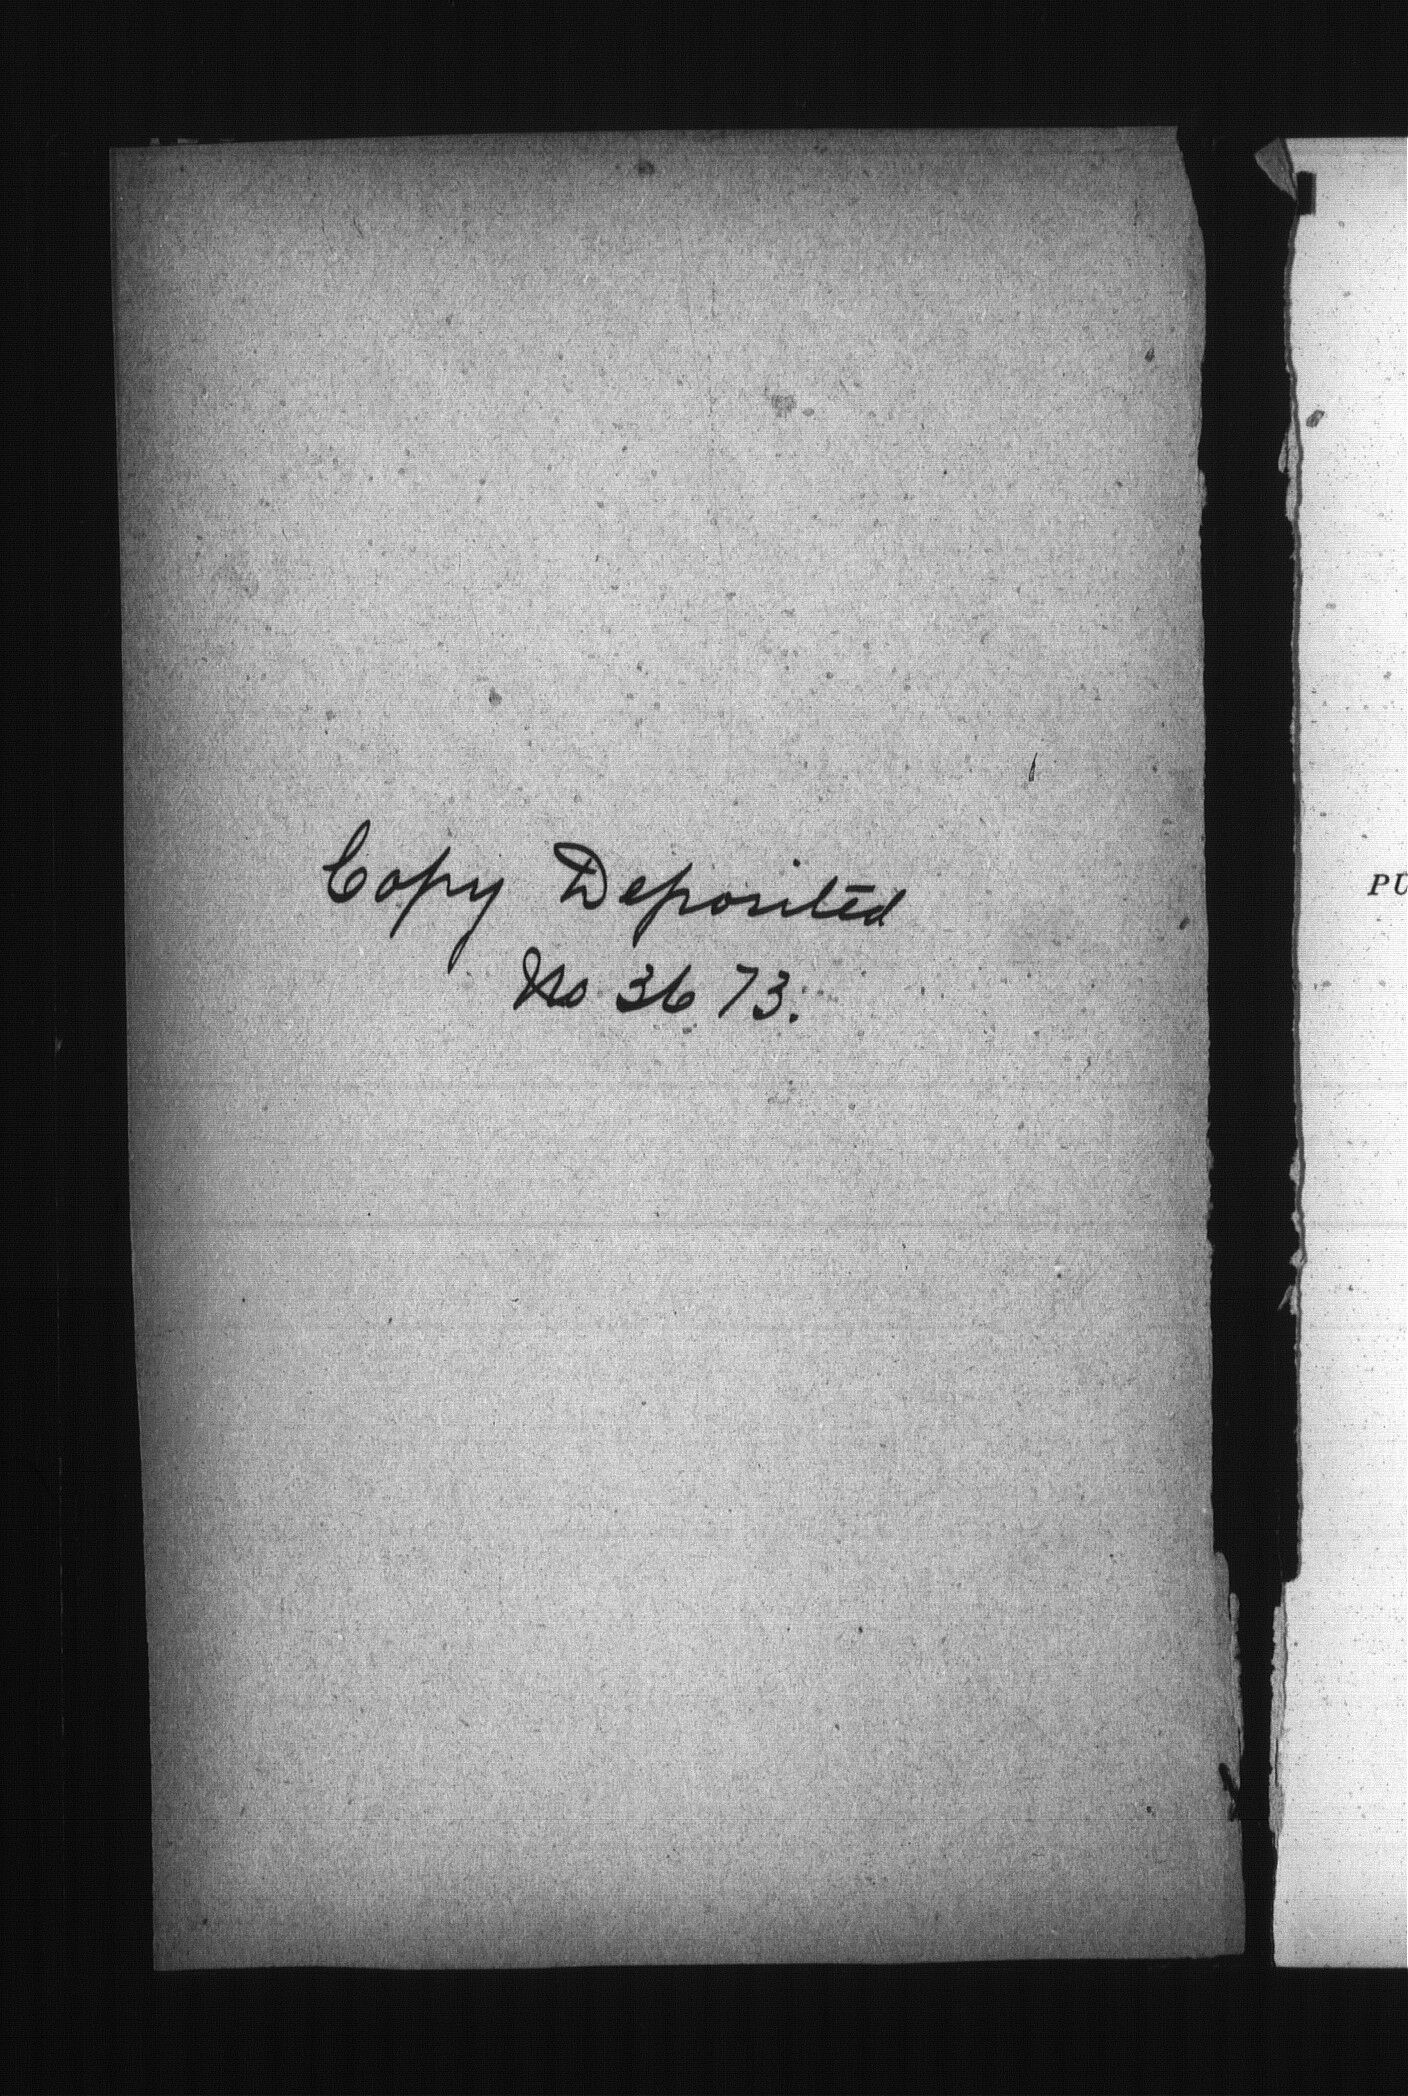 Copy Deposited
No 3673.
PU